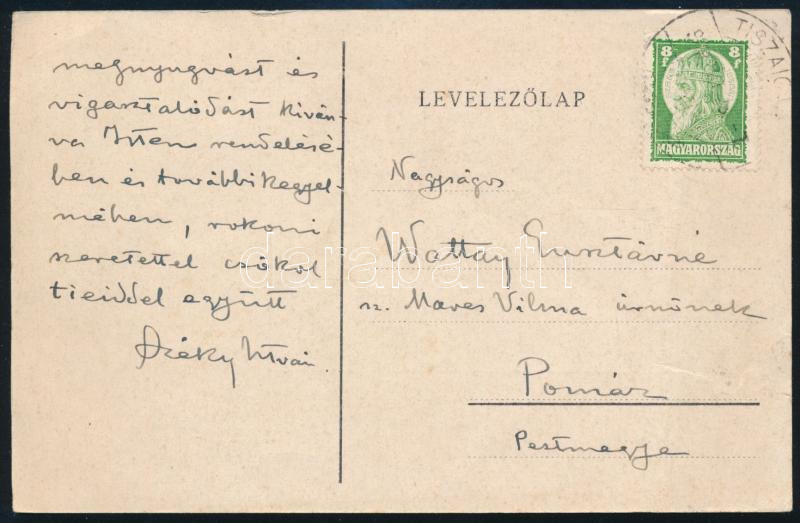 megnyugvást és
vigasztalódást kíván-
va Isten rendelésé-
ben és további kegyel-
mében, rokoni
szeretettel csókol
tieiddel együtt
Széky István
LEVELEZŐLAP
8 f 8 f
MAGYARORSZÁG
TISZA
Nagyságos
Wattay Gusztávné
sz. Maves Vilma úrnőnek
Pomáz
Pestmegye
darabanth